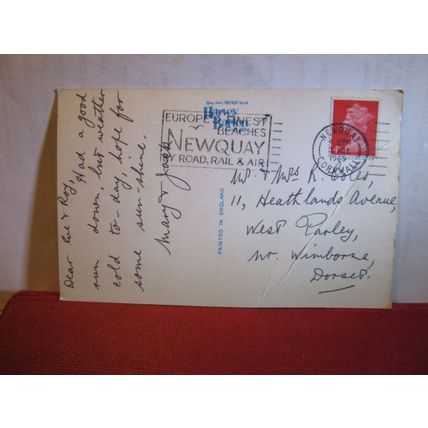 Dear Eve & Roy,
Had a good
run down, but weather
cold to-day, hope for
some sunshine.
Mary & Jack
Harvey
Barton
EUROPE'S FINEST
BEACHES
NEWQUAY
BY ROAD, RAIL & AIR
PRINTED IN ENGLAND
NEWQUAY
1969
CORNWALL
Mr. & Mrs R. Coles,
11, Heathlands Avenue,
West Parley,
Nr. Wimborne,
Dorset.